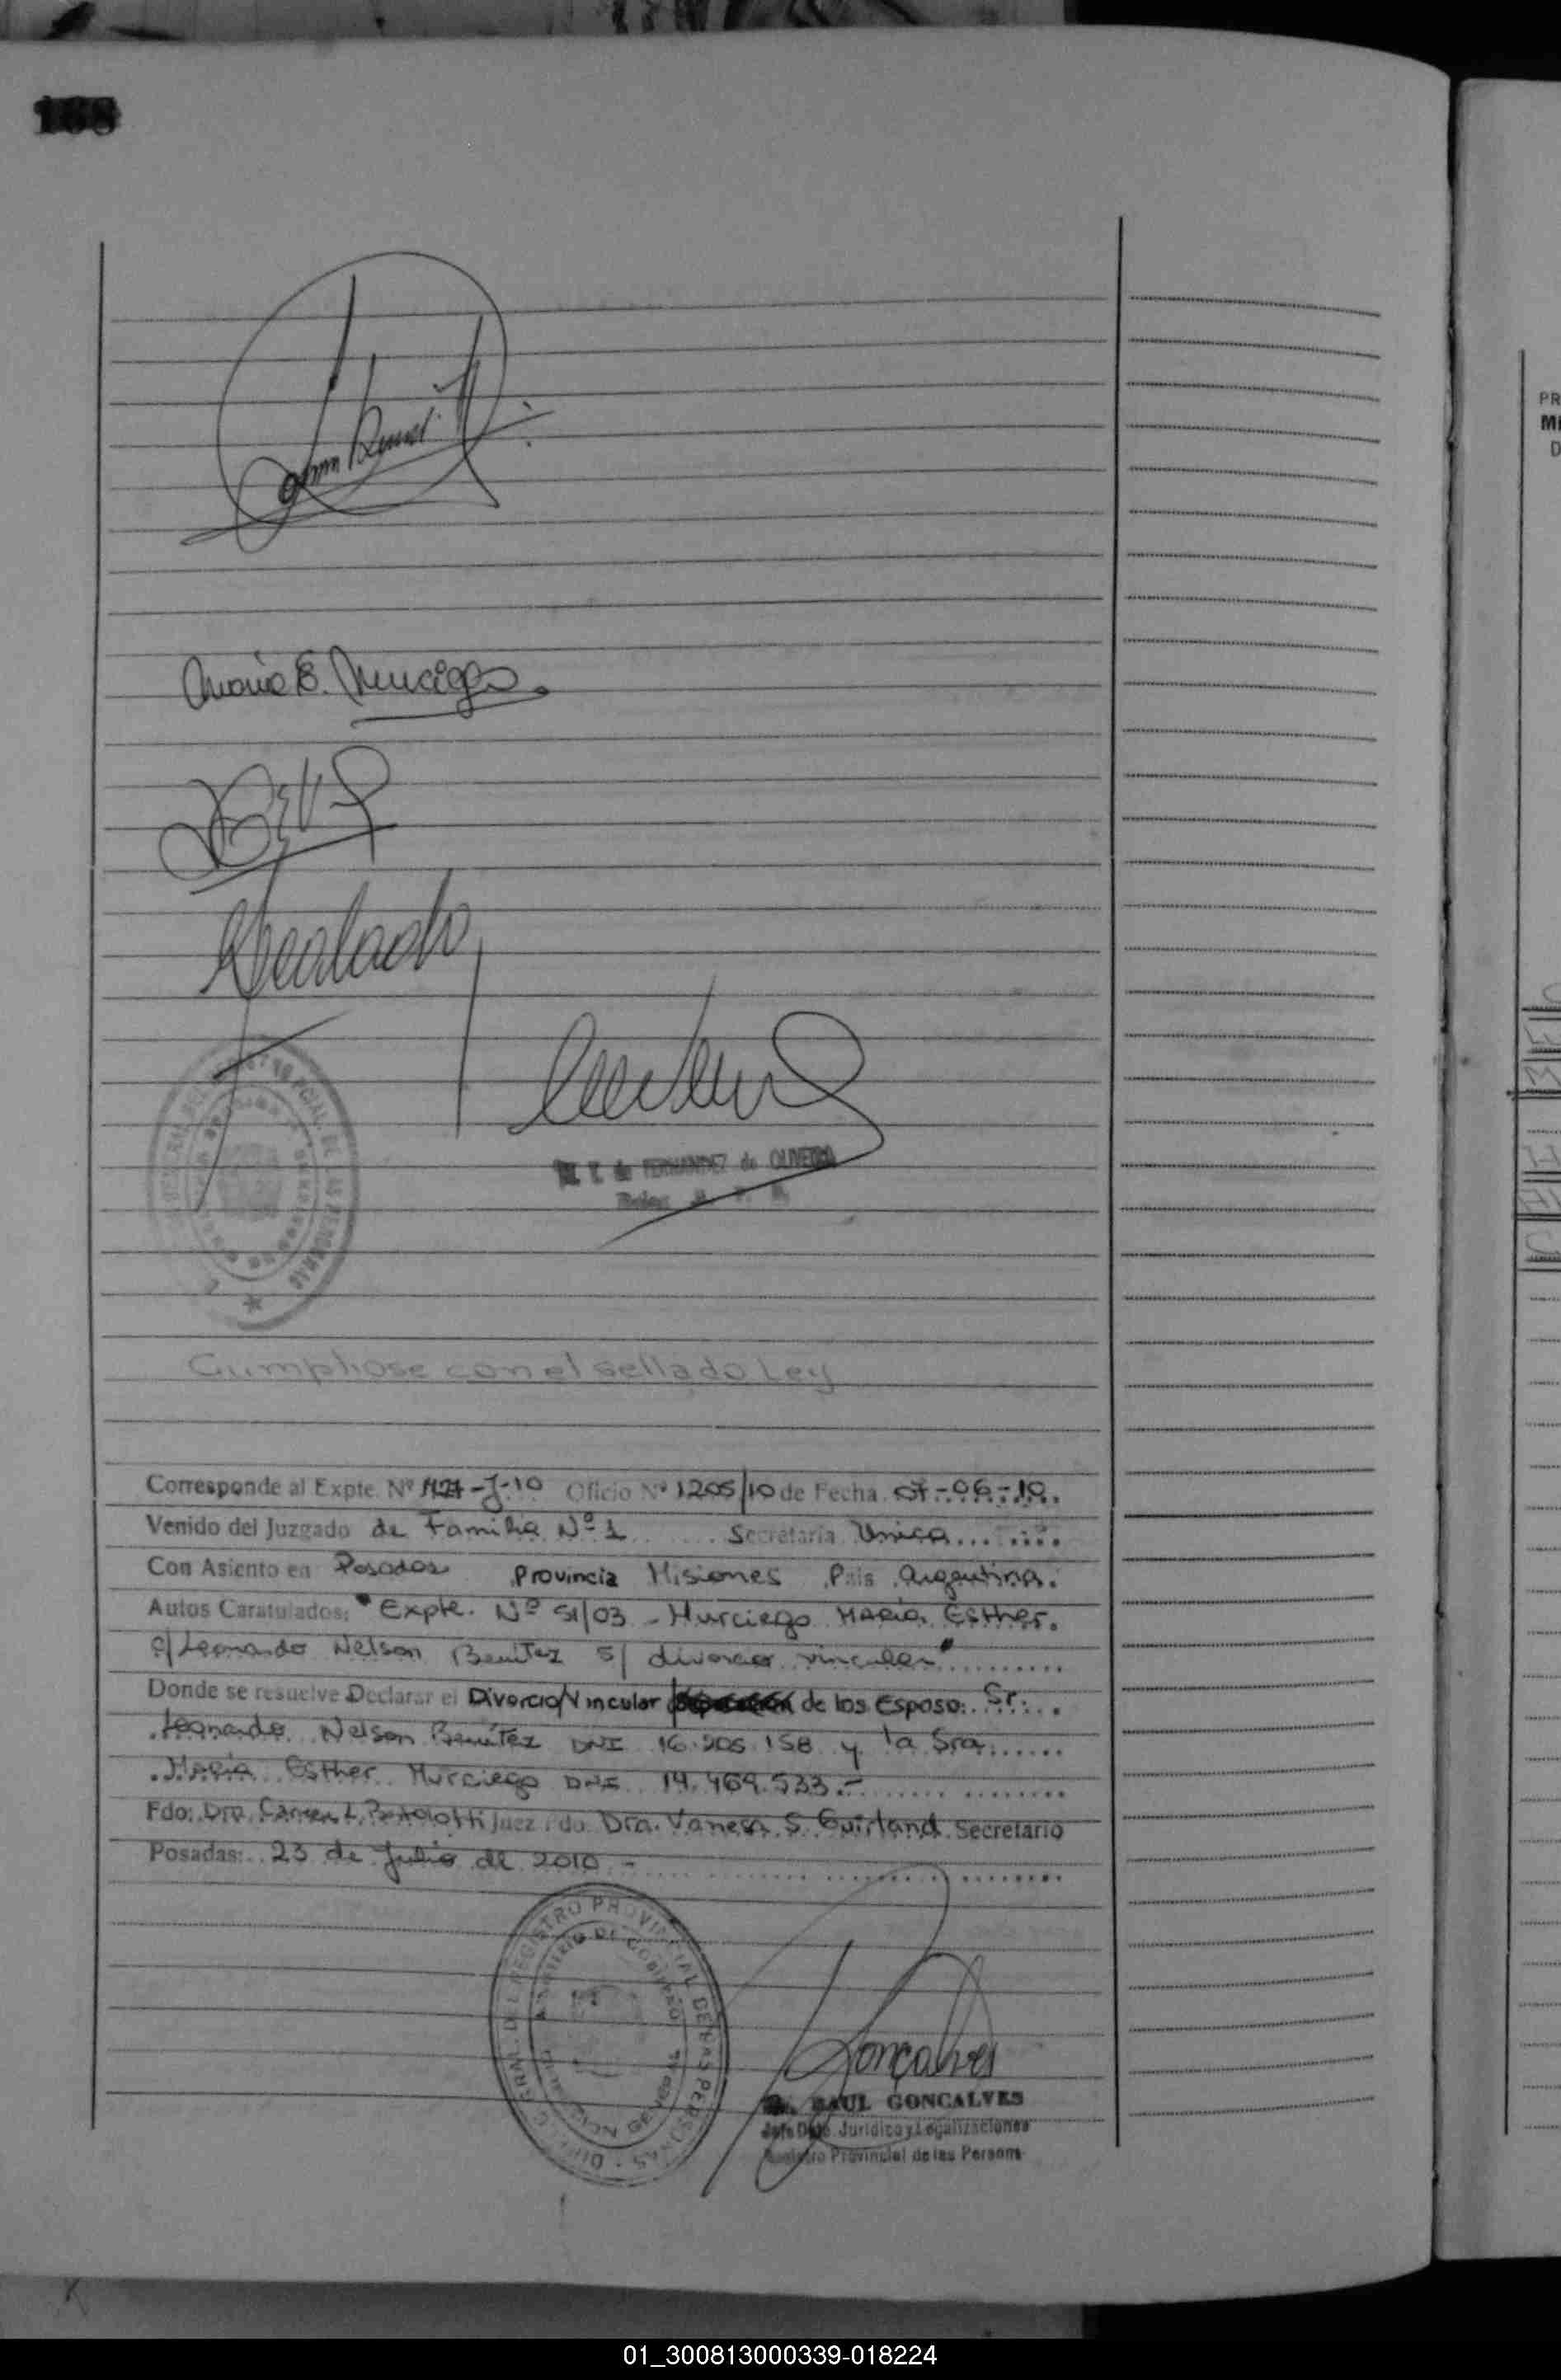 168
Maria E. Murciego
M. E. de FERNANDEZ de OLIVEIRA
Cumpliose con el sellado Ley
Corresponde al Expte. Nº -J-10 Oficio Nº 1205/10 de Fecha 07-06-10
Venido del Juzgado de Familia Nº 1 Secretaría Unica
Con Asiento en Posadas Provincia Misiones País Argentina.
Autos Caratulados: "Expte. Nº 51/03 - Murciego María Esther.
c/ Leonardo Nelson Benítez s/ divorcio vincular"
Donde se resuelve Declarar el Divorcio/Vincular de los Esposo: Sr.
Leonardo Nelson Benítez DNI 16.205.158 y la Sra
María Esther Murciego DNI 14.469.533.-
Fdo: Dra. Carmen L. Bertolotti Juez fdo Dra. Vanesa S. Guirland Secretario
Posadas: 23 de Julio de 2010 -
DIRECC. GRAL. DEL REGISTRO PROVINCIAL DE LAS PERSONAS
MINISTERIO DE GOBIERNO
DIRECCION GENERAL
Goncalves
RAUL GONCALVES
Jefe Dpto. Jurídico y Legalizaciones
Registro Provincial de las Persons
PR
MI
D
01_300813000339-018224